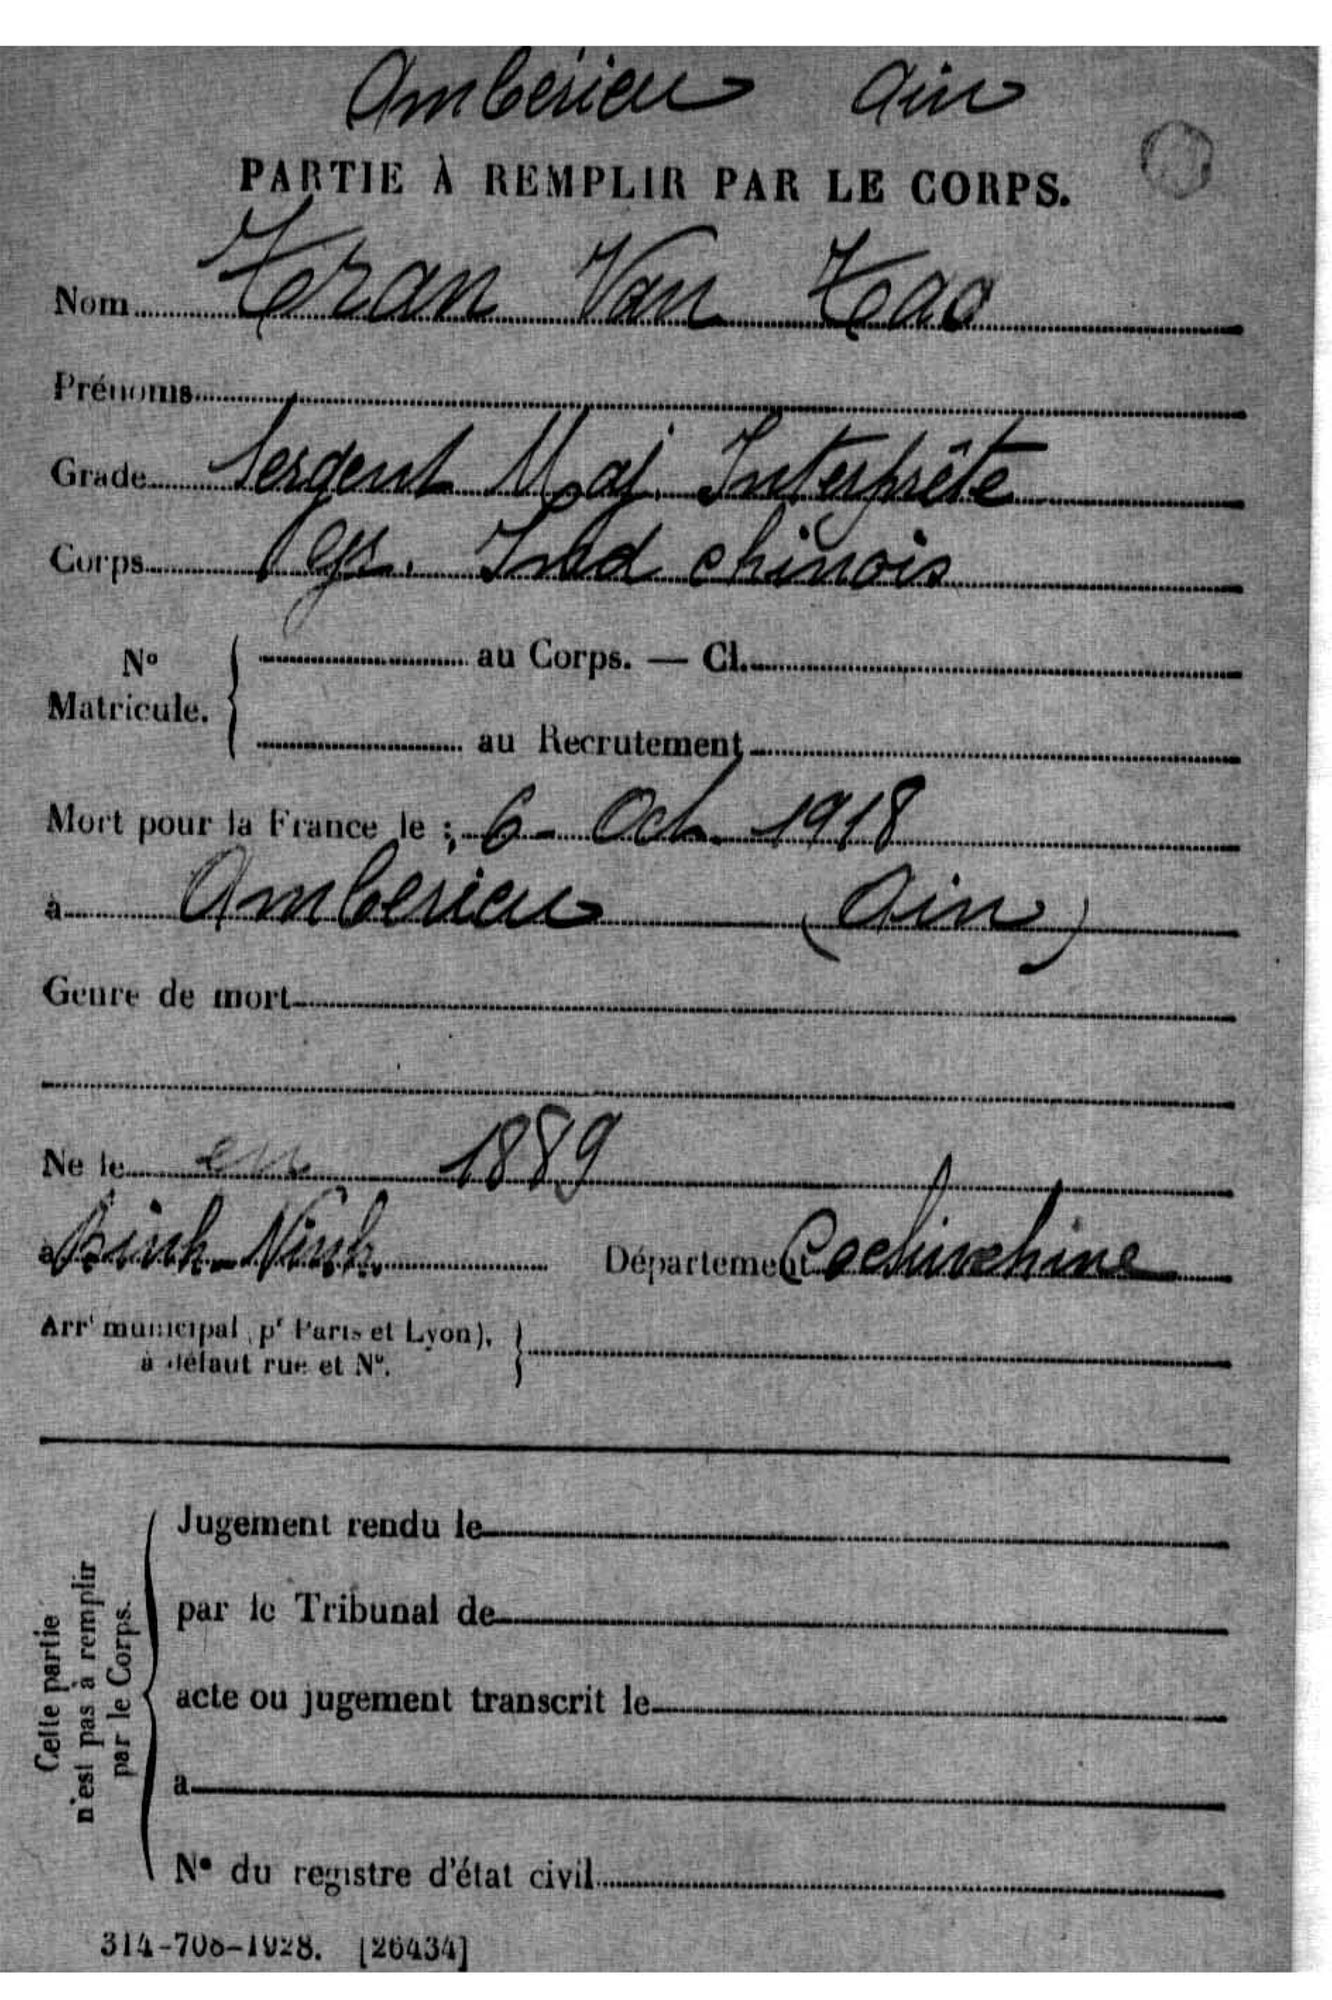 Ambérieu Ain
PARTIE À REMPLIR PAR LE CORPS.
Nom Tran Van Tao
Prénoms
Grade Sergent Maj. Interprête
Corps Ind chinois
N° Matricule. au Corps. — Cl.
au Recrutement
Mort pour la France le : 6 - Oct. 1918
à Ambérieu (Ain)
Genre de mort
Né le en 1889
à Binh-Ninh Département Cochinchine
Arrt municipal (pr Paris et Lyon),
à défaut rue et N°.
Jugement rendu le
par le Tribunal de
acte ou jugement transcrit le
à
N° du registre d'état civil
Cette partie
n'est pas à remplir
par le Corps.
314-708-1928. [26434]